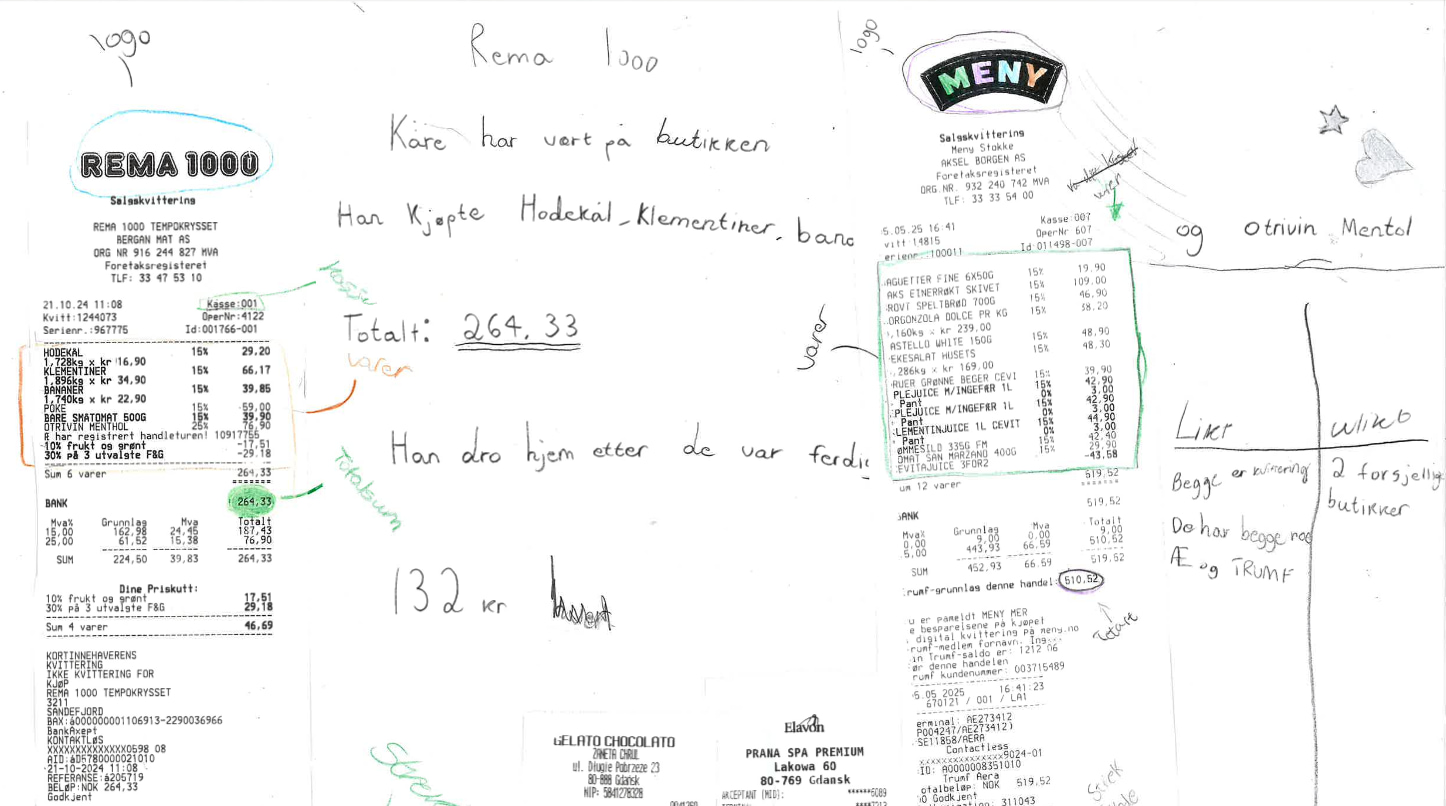 logo
REMA 1000
Salgskvittering
REMA 1000 TEMPOKRYSSET
BERGAN MAT AS
ORG NR 916 244 827 MVA
Foretaksregisteret
TLF: 33 47 53 10
21.10.24 11:08 Kasse:001
Kvitt:1244073 OperNr:4122
Serienr.:967775 Id:001766-001
HODEKÅL 15% 29,20
1,728kg x kr 16,90
KLEMENTINER 15% 66,17
1,896kg x kr 34,90
BANANER 15% 39,85
1,740kg x kr 22,90
POKE 15% 59,00
BARE SMATOMAT 500G 15% 39,90
OTRIVIN MENTHOL 25% 76,90
Æ har registrert handleturen! 10917755
10% frukt og grønt -17,51
30% på 3 utvalgte F&G -29,18
Sum 6 varer 264,33
BANK 264,33
Mva% Grunnlag Mva Totalt
15,00 162,98 24,45 187,43
25,00 61,52 15,38 76,90
SUM 224,50 39,83 264,33
Dine Priskutt:
10% frukt og grønt 17,51
30% på 3 utvalgte F&G 29,18
Sum 4 varer 46,69
KORTINNEHAVERENS
KVITTERING
IKKE KVITTERING FOR
KJØP
REMA 1000 TEMPOKRYSSET
3211
SANDEFJORD
BankAxept
KONTAKTLØS
XXXXXXXXXXXXXX0598 08
21-10-2024 11:08
BELØP:NOK 264,33
Godkjent
Kasse
varer
Totalsum
Rema 1000
Kåre har vært på butikken
Han kjøpte Hodekål, Klementiner, bana
Totalt: 264,33
Han dro hjem etter de var ferdi
132 kr
GELATO CHOCOLATO
ul. Długie Pobrzeże 23
80-888 Gdańsk
NIP: 5841278328
Elavon
PRANA SPA PREMIUM
Lakowa 60
80-769 Gdansk
AKCEPTANT (MID): ******6089
logo
MENY
Salgskvittering
Meny Stokke
AKSEL BORGEN AS
Foretaksregisteret
ORG.NR. 932 240 742 MVA
TLF: 33 33 54 00
5.05.25 16:41 Kasse:007
vitt:14815 OperNr 607
erienr.:100011 Id:011498-007
varer
varer
AGUETTER FINE 6X50G 15% 19,90
AKS EINERRØKT SKIVET 15% 109,00
ROVT SPELTBRØD 700G 15% 46,90
ORGONZOLA DOLCE PR KG 15% 38,20
,160kg x kr 239,00
ASTELLO WHITE 150G 15% 48,90
EKESALAT HUSETS 15% 48,30
,286kg x kr 169,00
RUER GRØNNE BEGER CEVI 15% 39,90
PLEJUICE M/INGEFÆR 1L 15% 42,90
Pant 0% 3,00
PLEJUICE M/INGEFÆR 1L 15% 42,90
Pant 0% 3,00
LEMENTINJUICE 1L CEVIT 15% 44,90
Pant 0% 3,00
ØMMESILD 335G FM 15% 42,40
OMAT SAN MARZANO 400G 15% 29,90
EVITAJUICE 3FOR2 -43,58
um 12 varer 519,52
ANK 519,52
Mva% Grunnlag Mva Totalt
0,00 9,00 0,00 9,00
5,00 443,93 66,59 510,52
SUM 452,93 66,59 519,52
rumf-grunnlag denne handel: 510,52
Totalt
u er påmeldt MENY MER
e besparelsene på kjøpet
digital kvittering på meny.no
rumf-medlem fornavn: Ing---
in Trumf-saldo er: 1212 06
ør denne handelen
rumf kundenummer: 003715489
5.05 2025 16:41:23
670121 / 001 / LA1
erminal: AE273412
SE11858/AERA
Contactless
xxxxxxxxxxxxxx9024-01
ID: A0000008351010
Trumf Aera
otalbeløp: NOK 519,52
Godkjent
311043
og Otrivin Mentol
Liker ulikt
Begge er kvittering 2 forsjellig butikker
De har begge noe
Æ og TRUMF